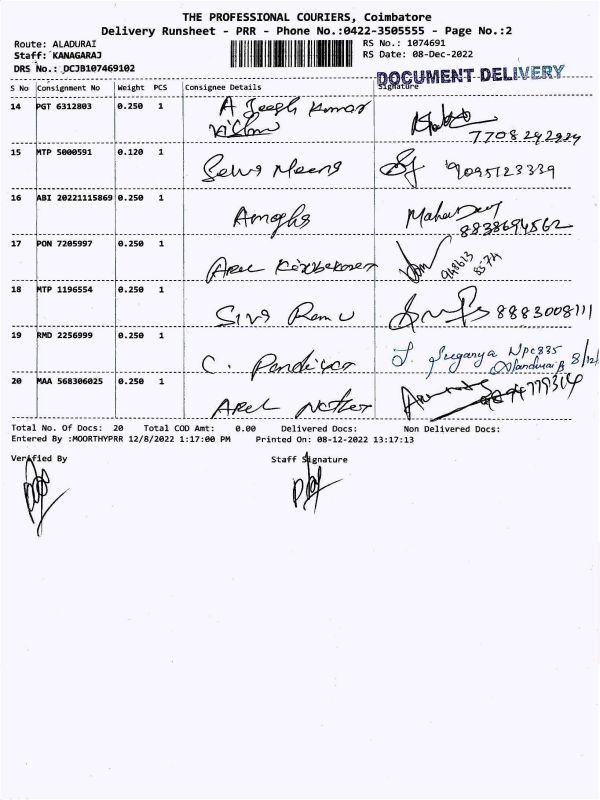 THE PROFESSIONAL COURIERS, Coimbatore
Delivery Runsheet - PRR - Phone No.:0422-3505555 - Page No.:2
Route: ALADURAI
RS No.: 1074691
Staff: KANAGARAJ
RS Date: 08-Dec-2022
DRS No.: DCJB107469102
DOCUMENT DELIVERY
S No Consignment No Weight PCS Consignee Details Signature
14 PGT 6312803 0.250 1 A Kumar
7708292929
15 MTP 5000591 0.120 1 Selva Meena 9095123339
16 ABI 20221115869 0.250 1 Amogha
8838694562
17 PON 7205997 0.250 1 Arul
18 MTP 1196554 0.250 1 Siva Ramu 8883008111
19 RMD 2256999 0.250 1 C. Pandiyar J. Suganya
8/12/
20 MAA 568306025 0.250 1 Arul
Total No. Of Docs: 20 Total COD Amt: 0.00 Delivered Docs: Non Delivered Docs:
Entered By :MOORTHYPRR 12/8/2022 1:17:00 PM Printed On: 08-12-2022 13:17:13
Verified By Staff Signature